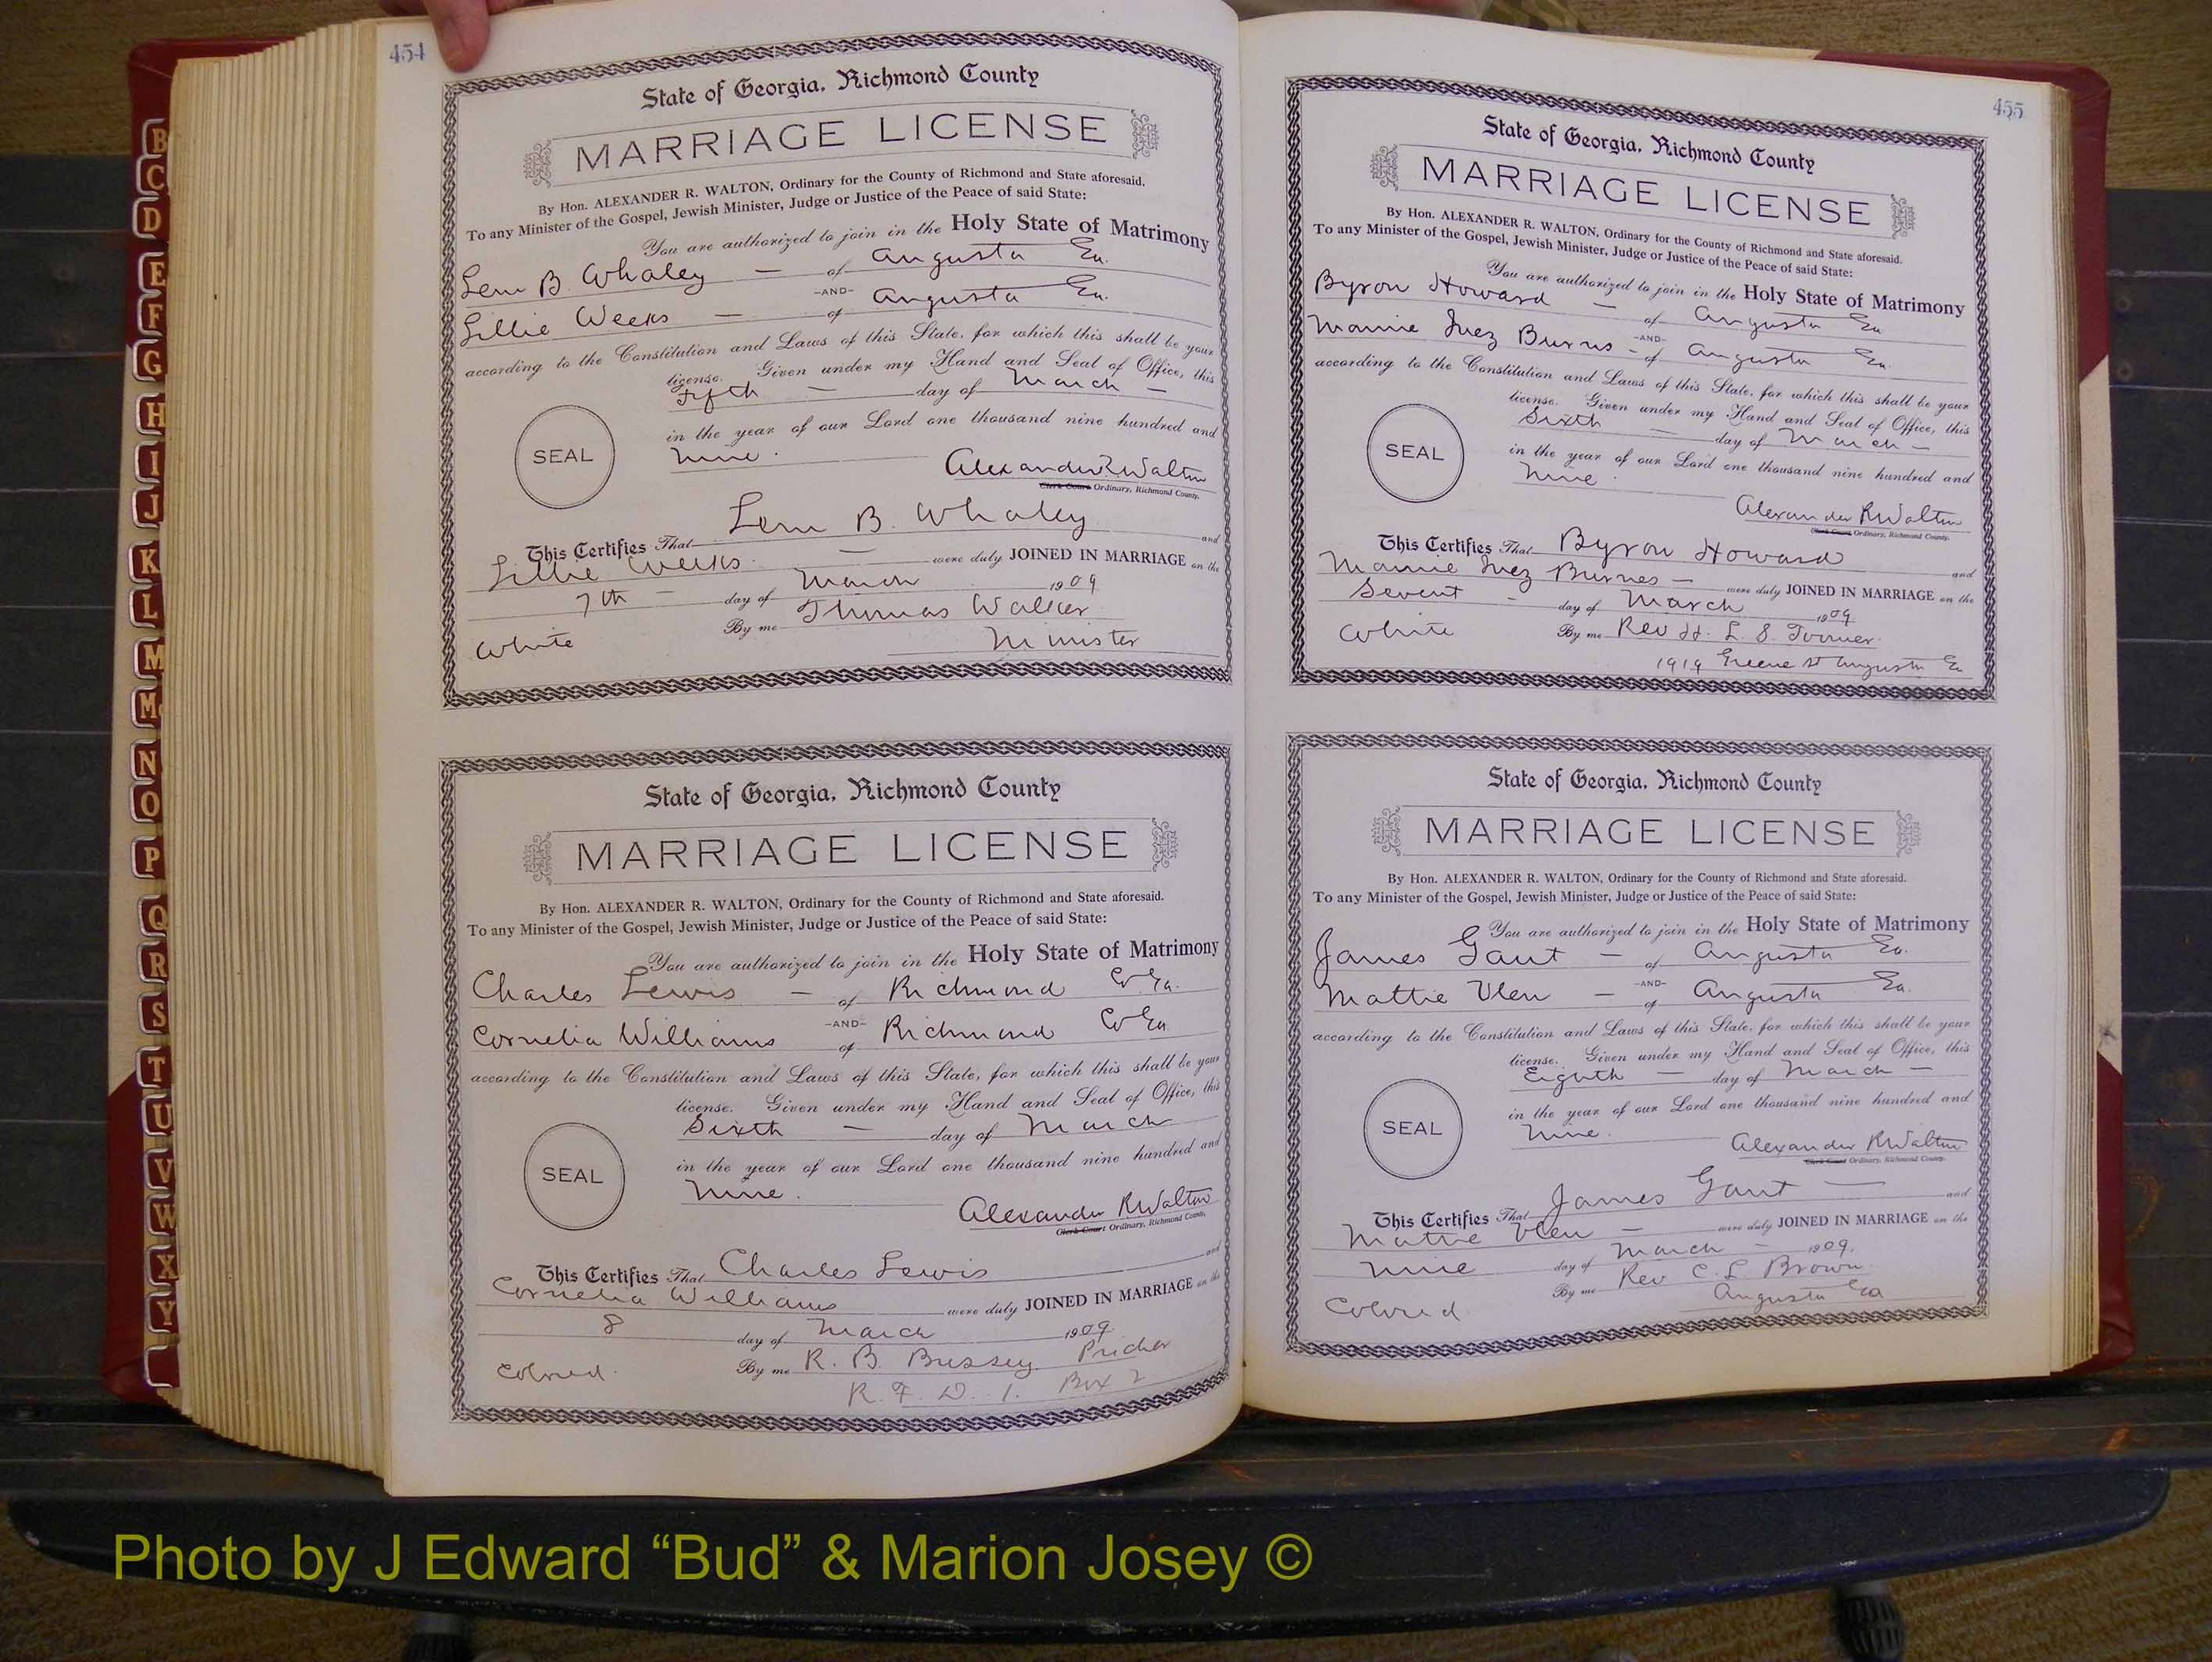 454
State of Georgia, Richmond County
MARRIAGE LICENSE
By Hon. ALEXANDER R. WALTON, Ordinary for the County of Richmond and State aforesaid.
To any Minister of the Gospel, Jewish Minister, Judge or Justice of the Peace of said State:
You are authorized to join in the Holy State of Matrimony
Lem B. Whaley — of Augusta Ga.
-AND-
Lillie Weeks — of Augusta Ga.
according to the Constitution and Laws of this State, for which this shall be your
license. Given under my Hand and Seal of Office, this
Fifth — day of March —
in the year of our Lord one thousand nine hundred and
SEAL
nine.
Alexander R Walton
Clerk Court Ordinary, Richmond County.
This Certifies That Lem B. Whaley and
Lillie Weeks — were duly JOINED IN MARRIAGE on the
7th — day of March 1909
By me Thomas Walker
White
Minister
State of Georgia, Richmond County
MARRIAGE LICENSE
By Hon. ALEXANDER R. WALTON, Ordinary for the County of Richmond and State aforesaid.
To any Minister of the Gospel, Jewish Minister, Judge or Justice of the Peace of said State:
You are authorized to join in the Holy State of Matrimony
Charles Lewis — of Richmond Co Ga.
-AND-
Cornelia Williams of Richmond Co Ga
according to the Constitution and Laws of this State, for which this shall be your
license. Given under my Hand and Seal of Office, this
Sixth — day of March
in the year of our Lord one thousand nine hundred and
SEAL
nine.
Alexander R Walton
Clerk Court Ordinary, Richmond County.
This Certifies That Charles Lewis and
Cornelia Williams were duly JOINED IN MARRIAGE on the
8 day of March 1909.
Colored. By me R. B. Bussey. Pricher
R. F. D. 1. Box 2
455
State of Georgia, Richmond County
MARRIAGE LICENSE
By Hon. ALEXANDER R. WALTON, Ordinary for the County of Richmond and State aforesaid.
To any Minister of the Gospel, Jewish Minister, Judge or Justice of the Peace of said State:
You are authorized to join in the Holy State of Matrimony
Byron Howard — of Augusta Ga
-AND-
Mamie Inez Burns - of Augusta Ga.
according to the Constitution and Laws of this State, for which this shall be your
license. Given under my Hand and Seal of Office, this
Sixth — day of March —
in the year of our Lord one thousand nine hundred and
SEAL
nine.
Alexander R Walton
Clerk Court Ordinary, Richmond County.
This Certifies That Byron Howard and
Mamie Inez Burnes — were duly JOINED IN MARRIAGE on the
Sevent - day of March 1909
White By me Rev H. L. S.
1919 Greene St Augusta Ga
State of Georgia, Richmond County
MARRIAGE LICENSE
By Hon. ALEXANDER R. WALTON, Ordinary for the County of Richmond and State aforesaid.
To any Minister of the Gospel, Jewish Minister, Judge or Justice of the Peace of said State:
You are authorized to join in the Holy State of Matrimony
James Gant — of Augusta Ga.
-AND-
Mattie Ulen — of Augusta Ga.
according to the Constitution and Laws of this State, for which this shall be your
license. Given under my Hand and Seal of Office, this
Eighth — day of March —
in the year of our Lord one thousand nine hundred and
SEAL
nine.
Alexander R Walton
Clerk Court Ordinary, Richmond County.
This Certifies That James Gant — and
Mattie Ulen — were duly JOINED IN MARRIAGE on the
nine day of March — 1909.
By me Rev C. L Brown
Colored
Augusta Ga
B
C
D
E
F
G
H
I
J
K
L
M
Mc
N
O
P
Q
R
S
T
U
V
W
X
Y
Photo by J Edward “Bud” & Marion Josey ©